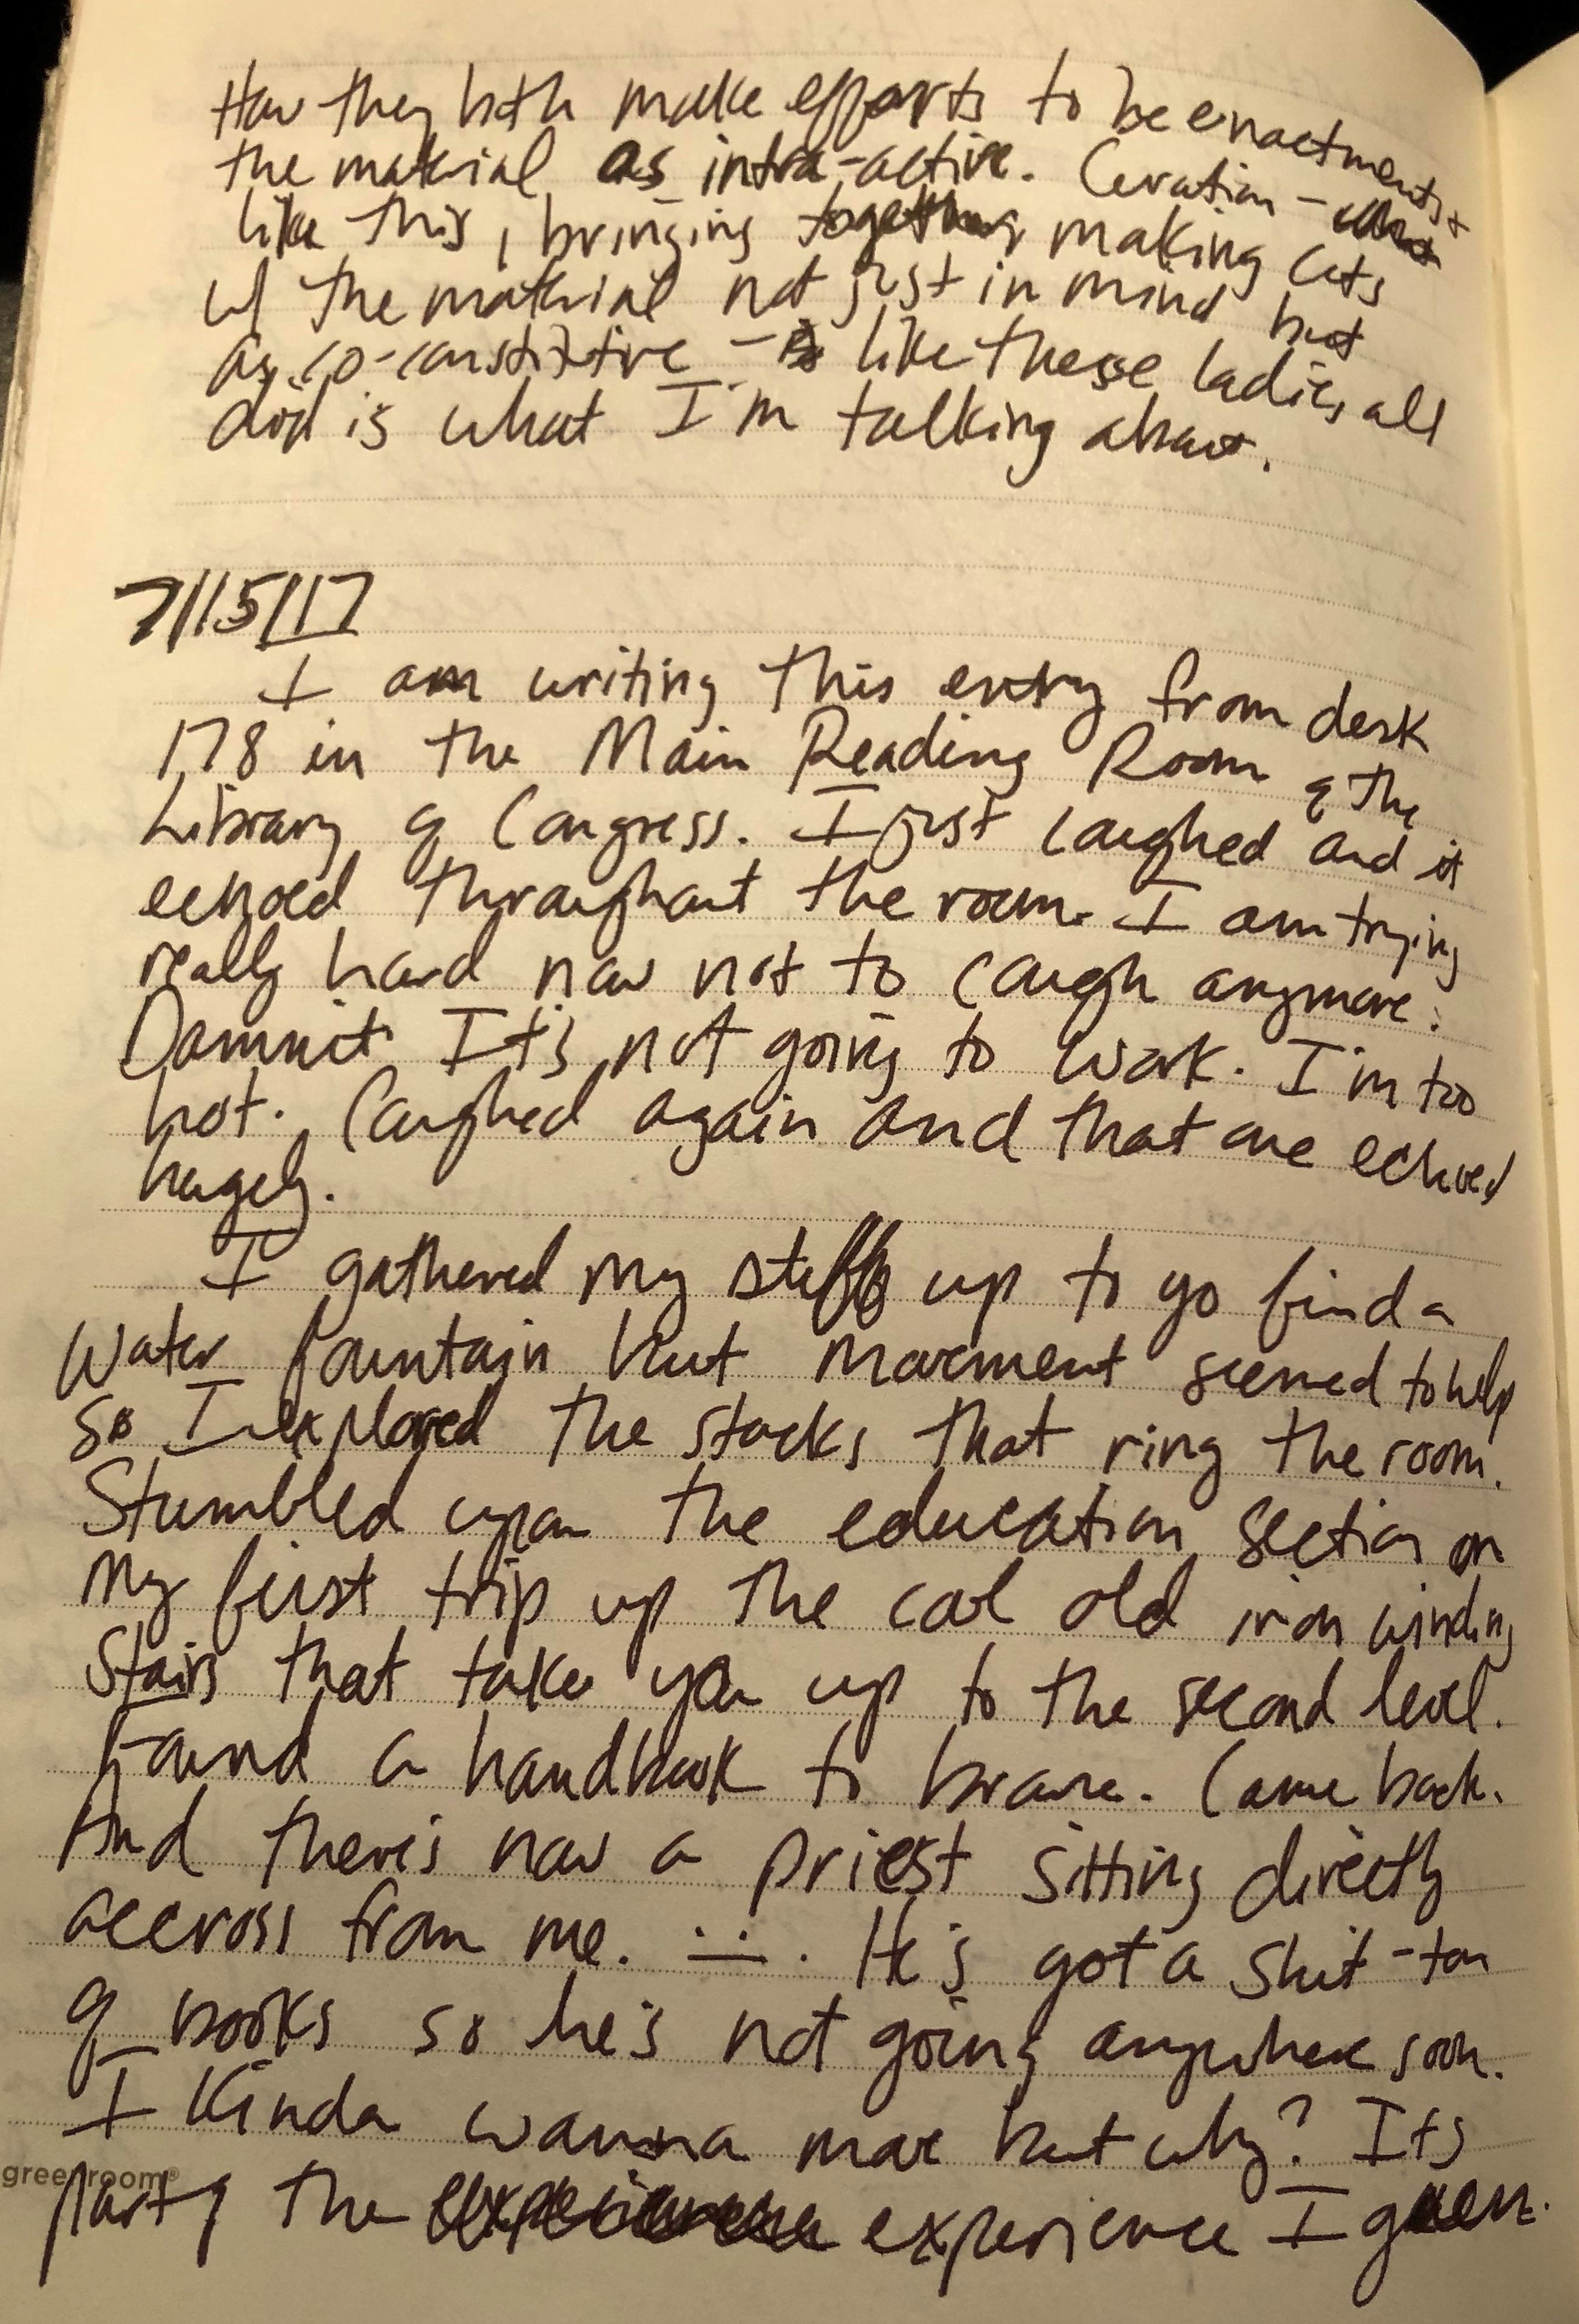 How they both make efforts to be enactments +
the material as intra-active. Curation -
like this, bringing together, making cuts
w/ the material not just in mind but
as co-constitutive - like these ladies all
did is what I'm talking about.
7/15/17
I am writing this entry from desk
178 in the Main Reading Room of the
Library of Congress. I just coughed and it
echoed throughout the room. I am trying
really hard now not to cough anymore.
Damnit It's not going to work. I'm too
hot. Coughed again and that one echoed
hugely.
I gathered my stuff up to go find a
water fountain but movement seemed to help
so I explored the stacks that ring the room.
Stumbled upon the education section on
my first trip up the cool old iron winding
stairs that take you up to the second level.
Found a handbook to browse. Came back.
And there's now a priest sitting directly
accross from me. He's got a shit-ton
of books so he's not going anywhere soon.
I kinda wanna move but why? Its
greenroom®
part of the experience I guess.